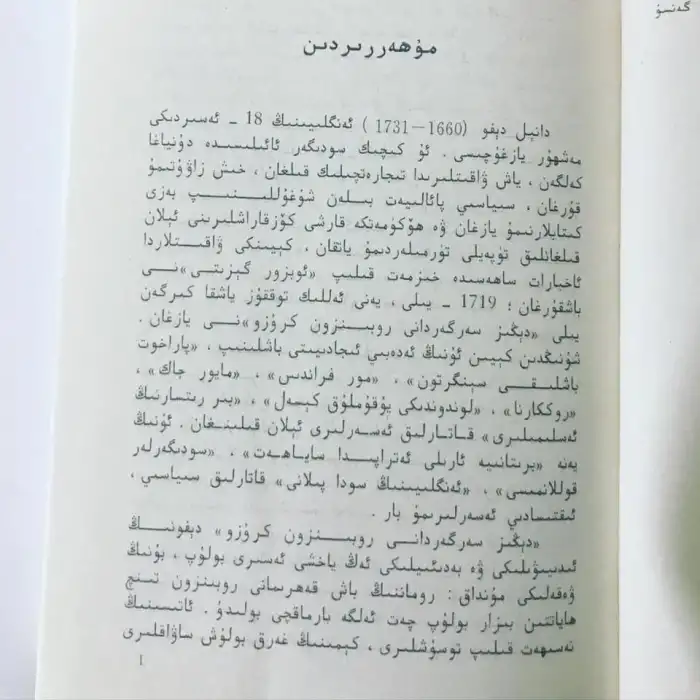 گەنسۇ
مۇھەررىردىن
دانىېل دېفو (1660—1731) ئەنگلىيىنىڭ 18 ـ ئەسىردىكى
مەشھۇر يازغۇچىسى . ئۇ كىچىك سودىگەر ئائىلىسىدە دۇنياغا
كەلگەن ، ياش ۋاقىتلىرىدا تىجارەتچىلىك قىلغان ، خىش زاۋۇتىمۇ
قۇرغان ، سىياسىي پائالىيەت بىلەن شۇغۇللىنىپ بەزى
كىتابلارنىمۇ يازغان ۋە ھۆكۈمەتكە قارشى كۆزقاراشلىرىنى ئېلان
قىلغانلىق تۈپەيلى تۈرمىلەردىمۇ ياتقان . كېيىنكى ۋاقىتلاردا
ئاخبارات ساھەسىدە خىزمەت قىلىپ «ئوبزور گېزىتى»نى
باشقۇرغان ؛ 1719 ـ يىلى ، يەنى ئەللىك توققۇز ياشقا كىرگەن
يىلى «دېڭىز سەرگەردانى روبىنزون كرۇزو»نى يازغان .
شۇنىڭدىن كېيىن ئۇنىڭ ئەدەبىي ئىجادىيىتى باشلىنىپ ، «پاراخوت
باشلىقى سىنگرتون» ، «مور فراندىس» ، «مايور جاك» ،
«روككارنا» ، «لوندوندىكى يۇقۇملۇق كېسەل» ، «بىر رىتسارنىڭ
ئەسلىمىلىرى» قاتارلىق ئەسەرلىرى ئېلان قىلىنغان . ئۇنىڭ
يەنە «بىرىتانىيە ئارىلى ئەتراپىدا ساياھەت» ، «سودىگەرلەر
قوللانمىسى» ، «ئەنگلىيىنىڭ سودا پىلانى» قاتارلىق سىياسىي ،
ئىقتىسادىي ئەسەرلىرىمۇ بار .
«دېڭىز سەرگەردانى روبىنزون كرۇزو» دېفونىڭ
ئىدىيىۋىلىكى ۋە بەدىئىيلىكى ئەڭ ياخشى ئەسىرى بولۇپ ، بۇنىڭ
ۋەقەلىكى مۇنداق : روماننىڭ باش قەھرىمانى روبىنزون تىنچ
ھاياتتىن بىزار بولۇپ چەت ئەلگە بارماقچى بولىدۇ . ئاتىسىنىڭ
نەسىھەت قىلىپ توسۇشلىرى ، كېمىنىڭ غەرق بولۇش ساۋاقلىرى
1